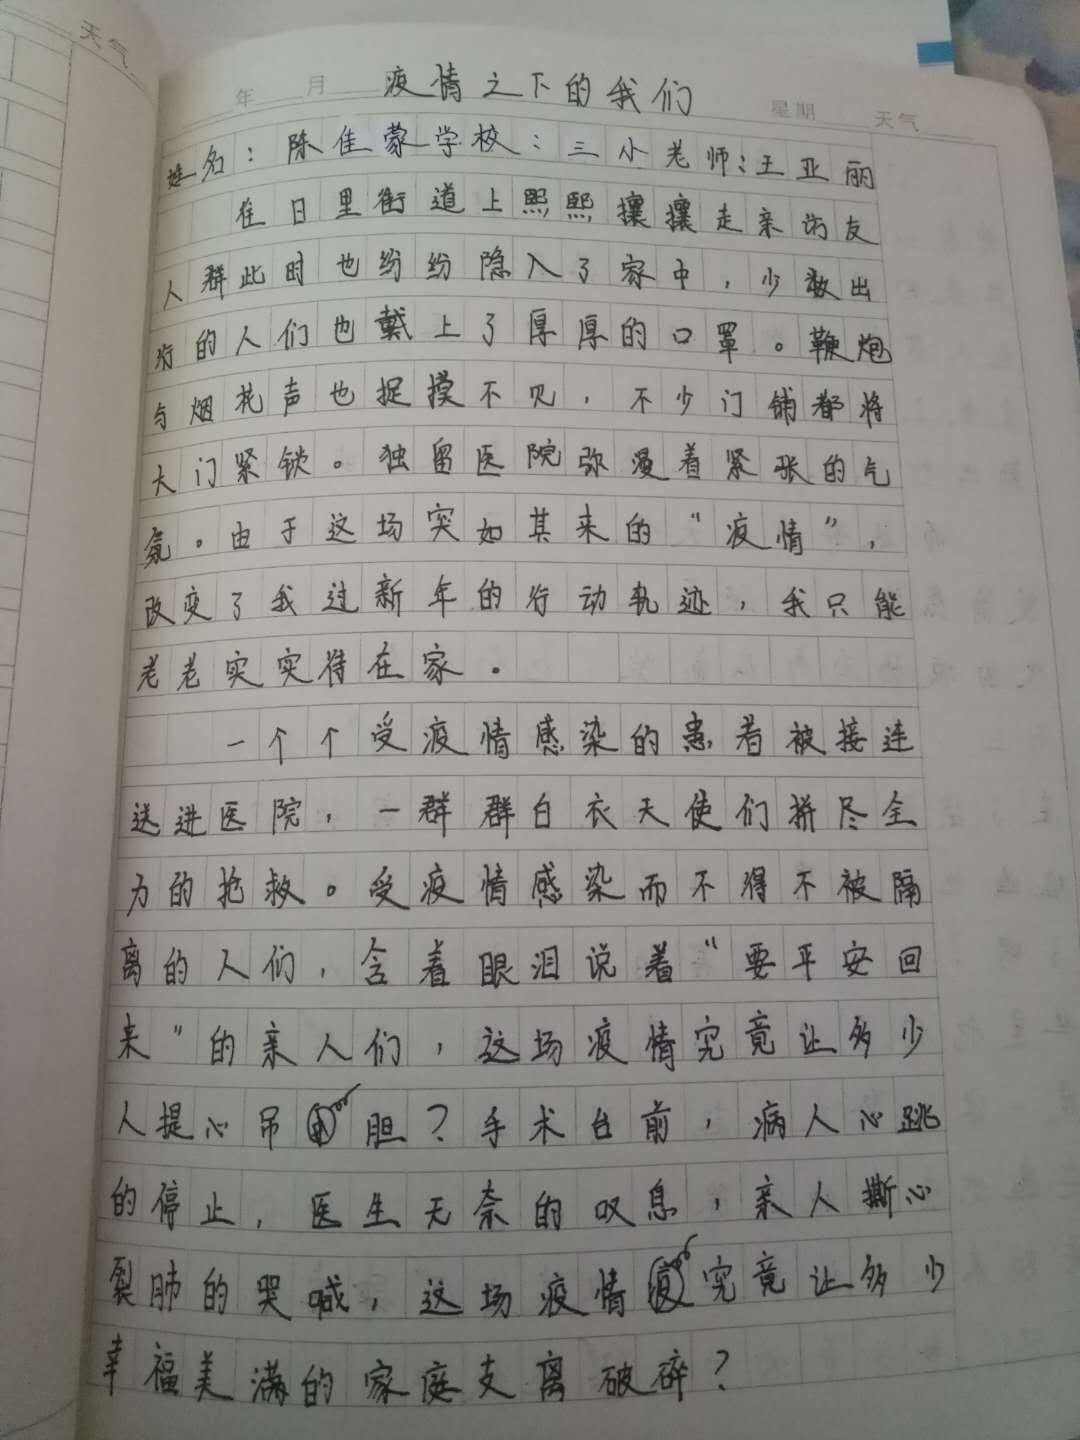 天气
年 月 疫情之下的我们 星期 天气
姓名：陈佳蒙学校：三小老师：王亚丽
在日里街道上熙熙攘攘走亲访友
人群此时也纷纷隐入了家中，少数出
行的人们也戴上了厚厚的口罩。鞭炮
与烟花声也捉摸不见，不少门铺都将
大门紧锁。独留医院弥漫着紧张的气
氛。由于这场突如其来的“疫情”，
改变了我过新年的行动轨迹，我只能
老老实实待在家。
一个个受疫情感染的患者被接连
送进医院，一群群白衣天使们拼尽全
力的抢救。受疫情感染而不得不被隔
离的人们，含着眼泪说着“要平安回
来”的亲人们，这场疫情究竟让多少
人提心吊胆？手术台前，病人心跳
的停止，医生无奈的叹息，亲人撕心
裂肺的哭喊，这场疫情究竟让多少
幸福美满的家庭支离破碎？